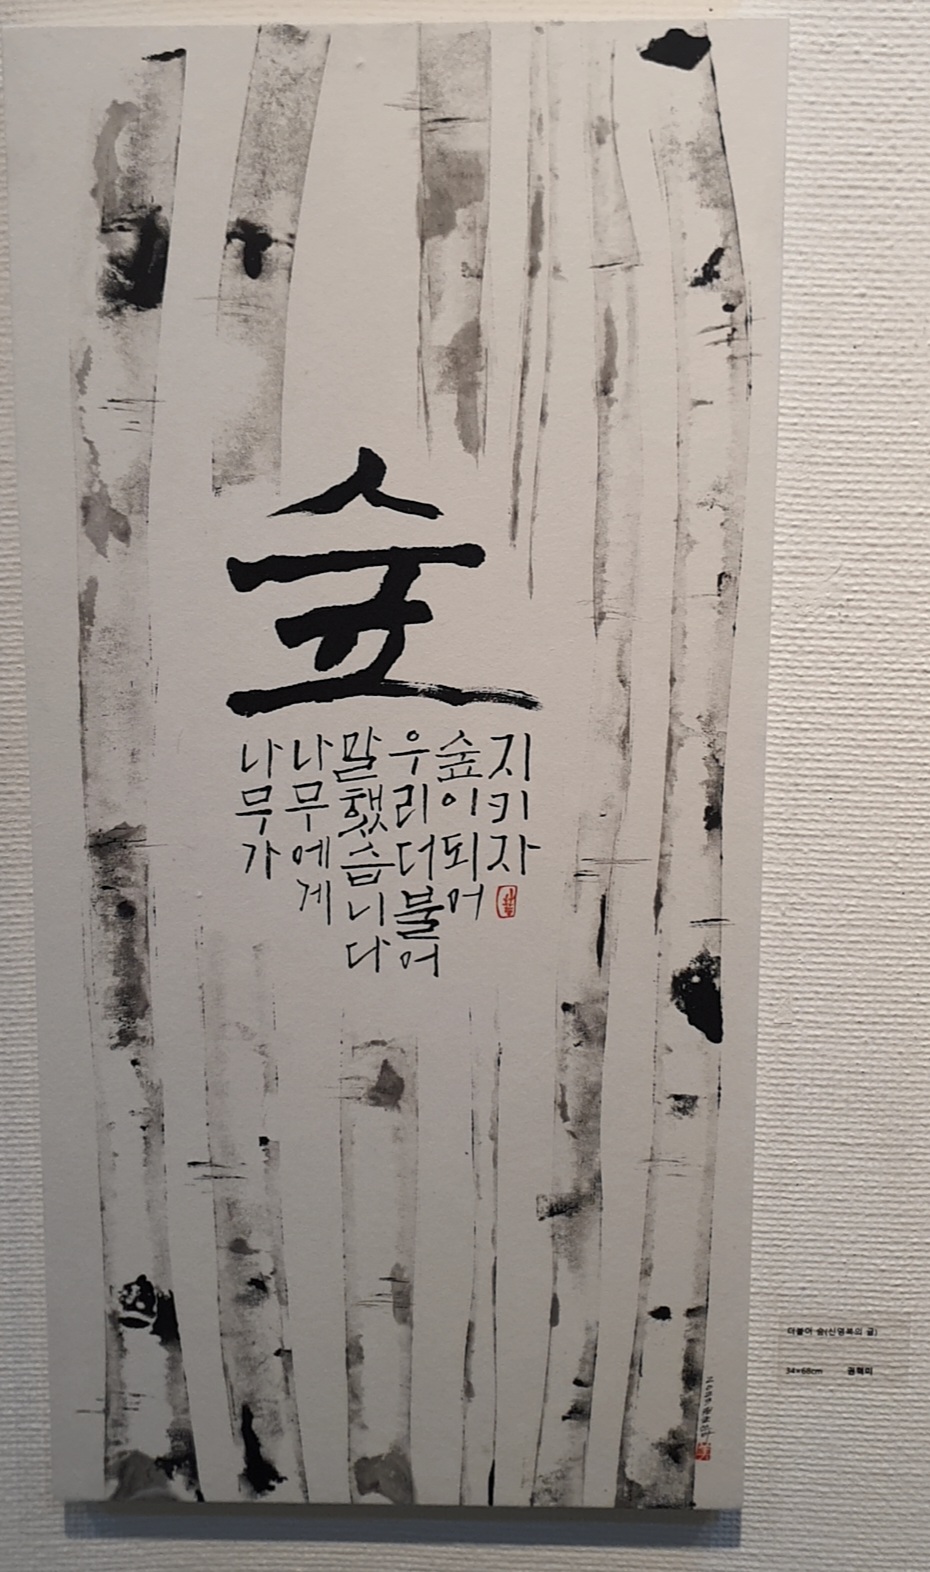 숲
나무가
나무에게
말했습니다
우리더불어
숲이되어
지키자
더불어 숲(신영복의 글)
34×68cm 권혁미